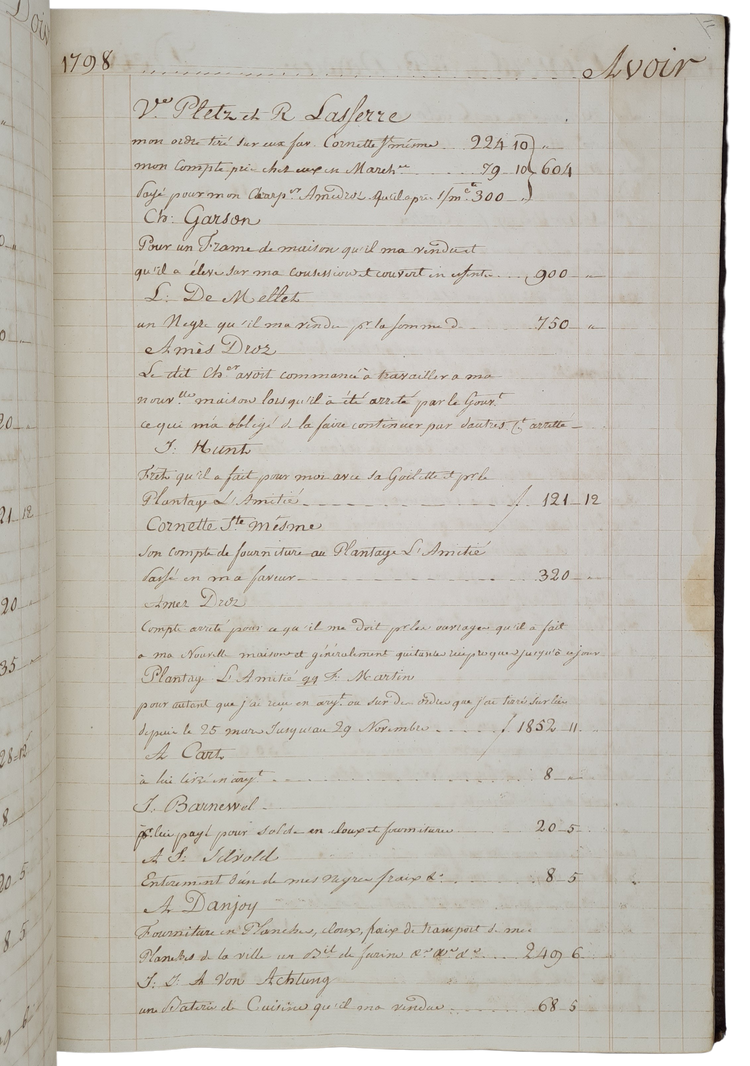 1798 Avoir
Ve. Pletz et R Lasserre
mon ordre tiré sur eux fav. Cornette St. mésme 224 10 "
mon Compte pris chez eux en March.se 79 10 604
Payé pour mon Charp.er Amédroz qu'il a pris 300 "
Ch: Garson
Pour un Frame de maison qu'il ma vendu et
qu'il a élevé sur ma Consession et couvert en 900 "
L: De Mellet
un Negre qu'il ma vendu pr. la somme d 750 "
Amès Droz
Le dit Ch.er avoit commencé à travailler a ma
nouv.lle maison lorsqu'il à été arreté par le Gouv.t
ce qui m'a obligé de la faire continuer par d'autres Ct. arretté
J: Hunt
Fret qu'il a fait pour moi avec sa Goilette et pr. le
Plantage L'Amitié 121 12
Cornette Ste. mésme
son compte de fourniture au Plantage L'Amitié
Passé en ma faveur 320
Amez Droz
Compte arreté pour ce qu'il me Doit pr. les ouvrages qu'il a fait
a ma Nouvelle maison et généralement quitance réciproque jusqu'à ce jour
Plantag L'Amitié qq F. Martin
pour autant que j'ai reçu en arg.t ou sur des ordres que j'ai tirés sur lui
depuis le 25 mars Jusqu'au 29 Novembre 1852 11
A Cart
à lui livré en arg.t 8 "
J. Barnewel
pr. lui payé pour solde en cloux et fourniture 20 5
A J:
Enterement d'un de mes Negres fraix &c. 8 5
A Danjoy
Fourniture en Planches, cloux, fraix de transport de mes
Planches de la ville un B.il de farine &c. &c. &c. 249 6
J: J: A Von Achtung
une Baterie de Cuisine qu'il ma vendue 68 5